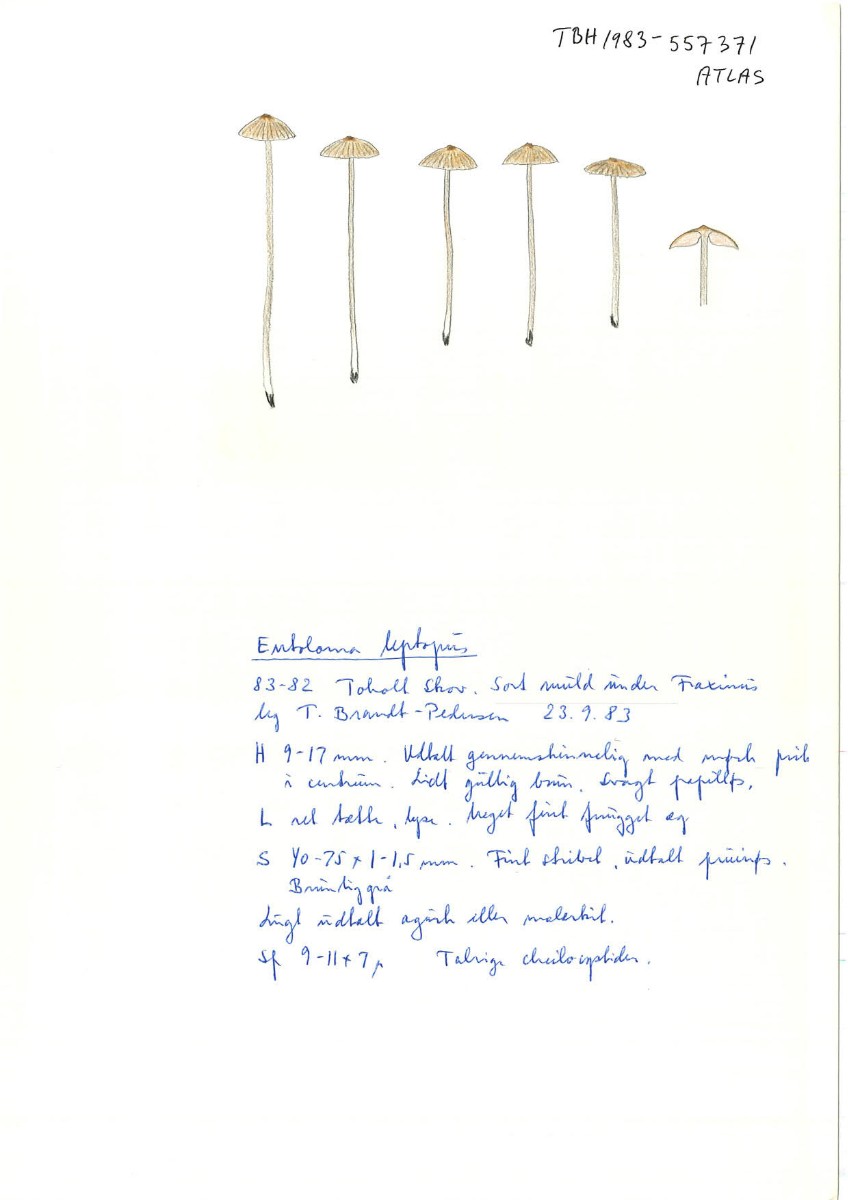 TBH/1983-557371
ATLAS
Entoloma leptopus
83-82 Toholt Skov. Sort muld under Fraxinus
leg T. Brandt-Pedersen 23.9.83
H 9-17 mm. Udtalt gennemskinnelig med mørk prik
i centrum. Lidt gullig brun. Svagt papilløs.
L ret tætte, lyse. Meget fint frugget æg
S 40-75 x 1-1,5 mm. Fint stribet, udtalt pruinøs.
Brunlig grå
Lugt udtalt agurk eller melartet.
Sp 9-11 x 7 µ Talrige cheilocystider.